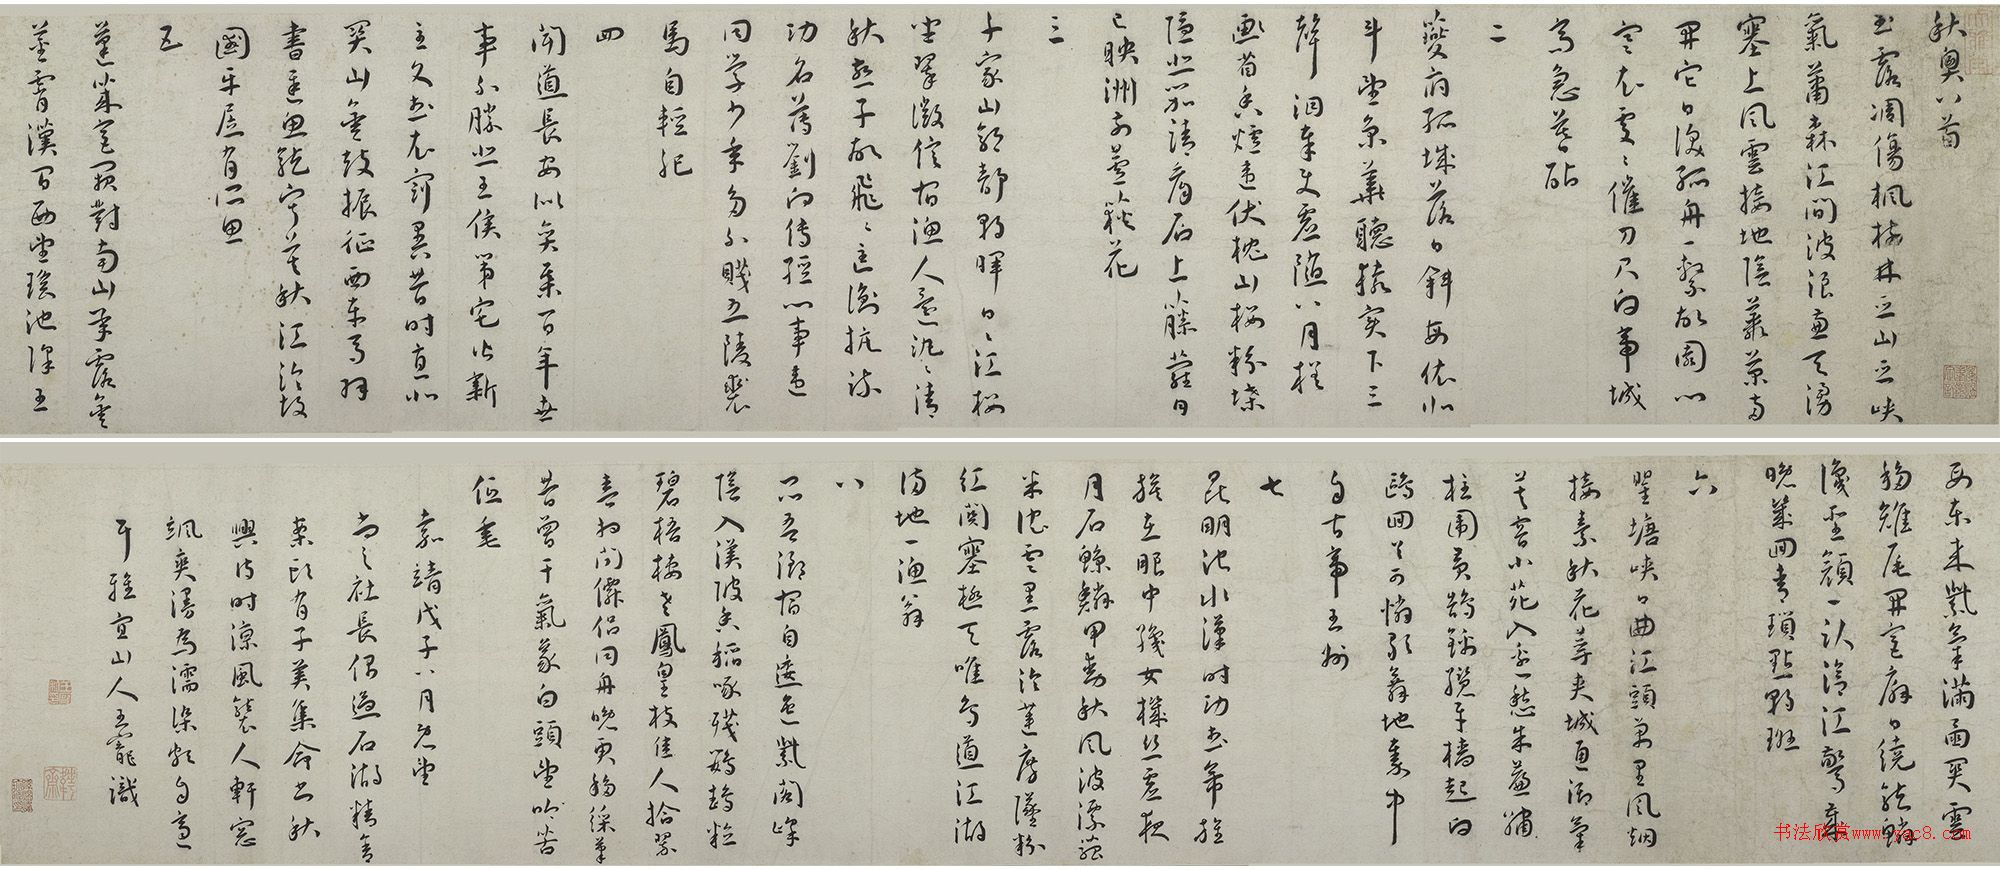 秋興八首
玉露凋傷楓樹林巫山巫峽
氣蕭森江間波浪兼天湧
塞上風雲接地陰叢菊兩
開它日淚孤舟一繫故園心
寒衣處〻催刀尺白帝城
高急暮砧
二
夔府孤城落日斜每依北
斗望京華聽猿實下三
聲淚奉使虛隨八月槎
畫省香爐違伏枕山樓粉堞
隱悲笳請看石上藤蘿月
已映洲前蘆荻花
三
千家山郭靜朝暉日〻江樓
坐翠微信宿漁人還泛〻清
秋燕子故飛〻匡衡抗疏
功名薄劉向傳經心事違
同學少年多不賤五陵裘
馬自輕肥
四
聞道長安似奕棊百年世
事不勝悲王侯第宅皆新
主文武衣冠異昔時直北
關山金鼓振征西車馬羽
書遲魚龍寂寞秋江冷故
國平居有所思
五
蓬萊宮闕對南山承露金
莖霄漢間西望瑤池降王
母東來紫氣滿函關雲
移雉尾開宮扇日繞龍鱗
識聖顏一臥滄江驚歲
晚幾回青瑣點朝班
六
瞿塘峽口曲江頭萬里風烟
接素秋花萼夾城通御氣
芙蓉小苑入邊愁朱簾繡
柱圍黃鵠錦纜牙檣起白
鷗回首可憐歌舞地秦中
自古帝王州
七
昆明池水漢時功武帝旌
旗在眼中織女機絲虛夜
月石鯨鱗甲動秋風波漂菰
米沉雲黑露冷蓮房墜粉
紅關塞極天唯鳥道江湖
滿地一漁翁
八
昆吾御宿自逶迤紫閣峰
陰入渼陂香稻啄殘鸚鵡粒
碧梧棲老鳳皇枝佳人拾翠
春相問僊侶同舟晚更移綵筆
昔曾干氣象白頭望吟苦
低垂
嘉靖戊子八月既望
尚之社長偶過石湖精舍
案頭有子美集命書秋
興詩時涼風襲人軒窗
颯爽漫為濡染頗自適
耳雅宜山人王寵識
书法欣赏www.yac8.com